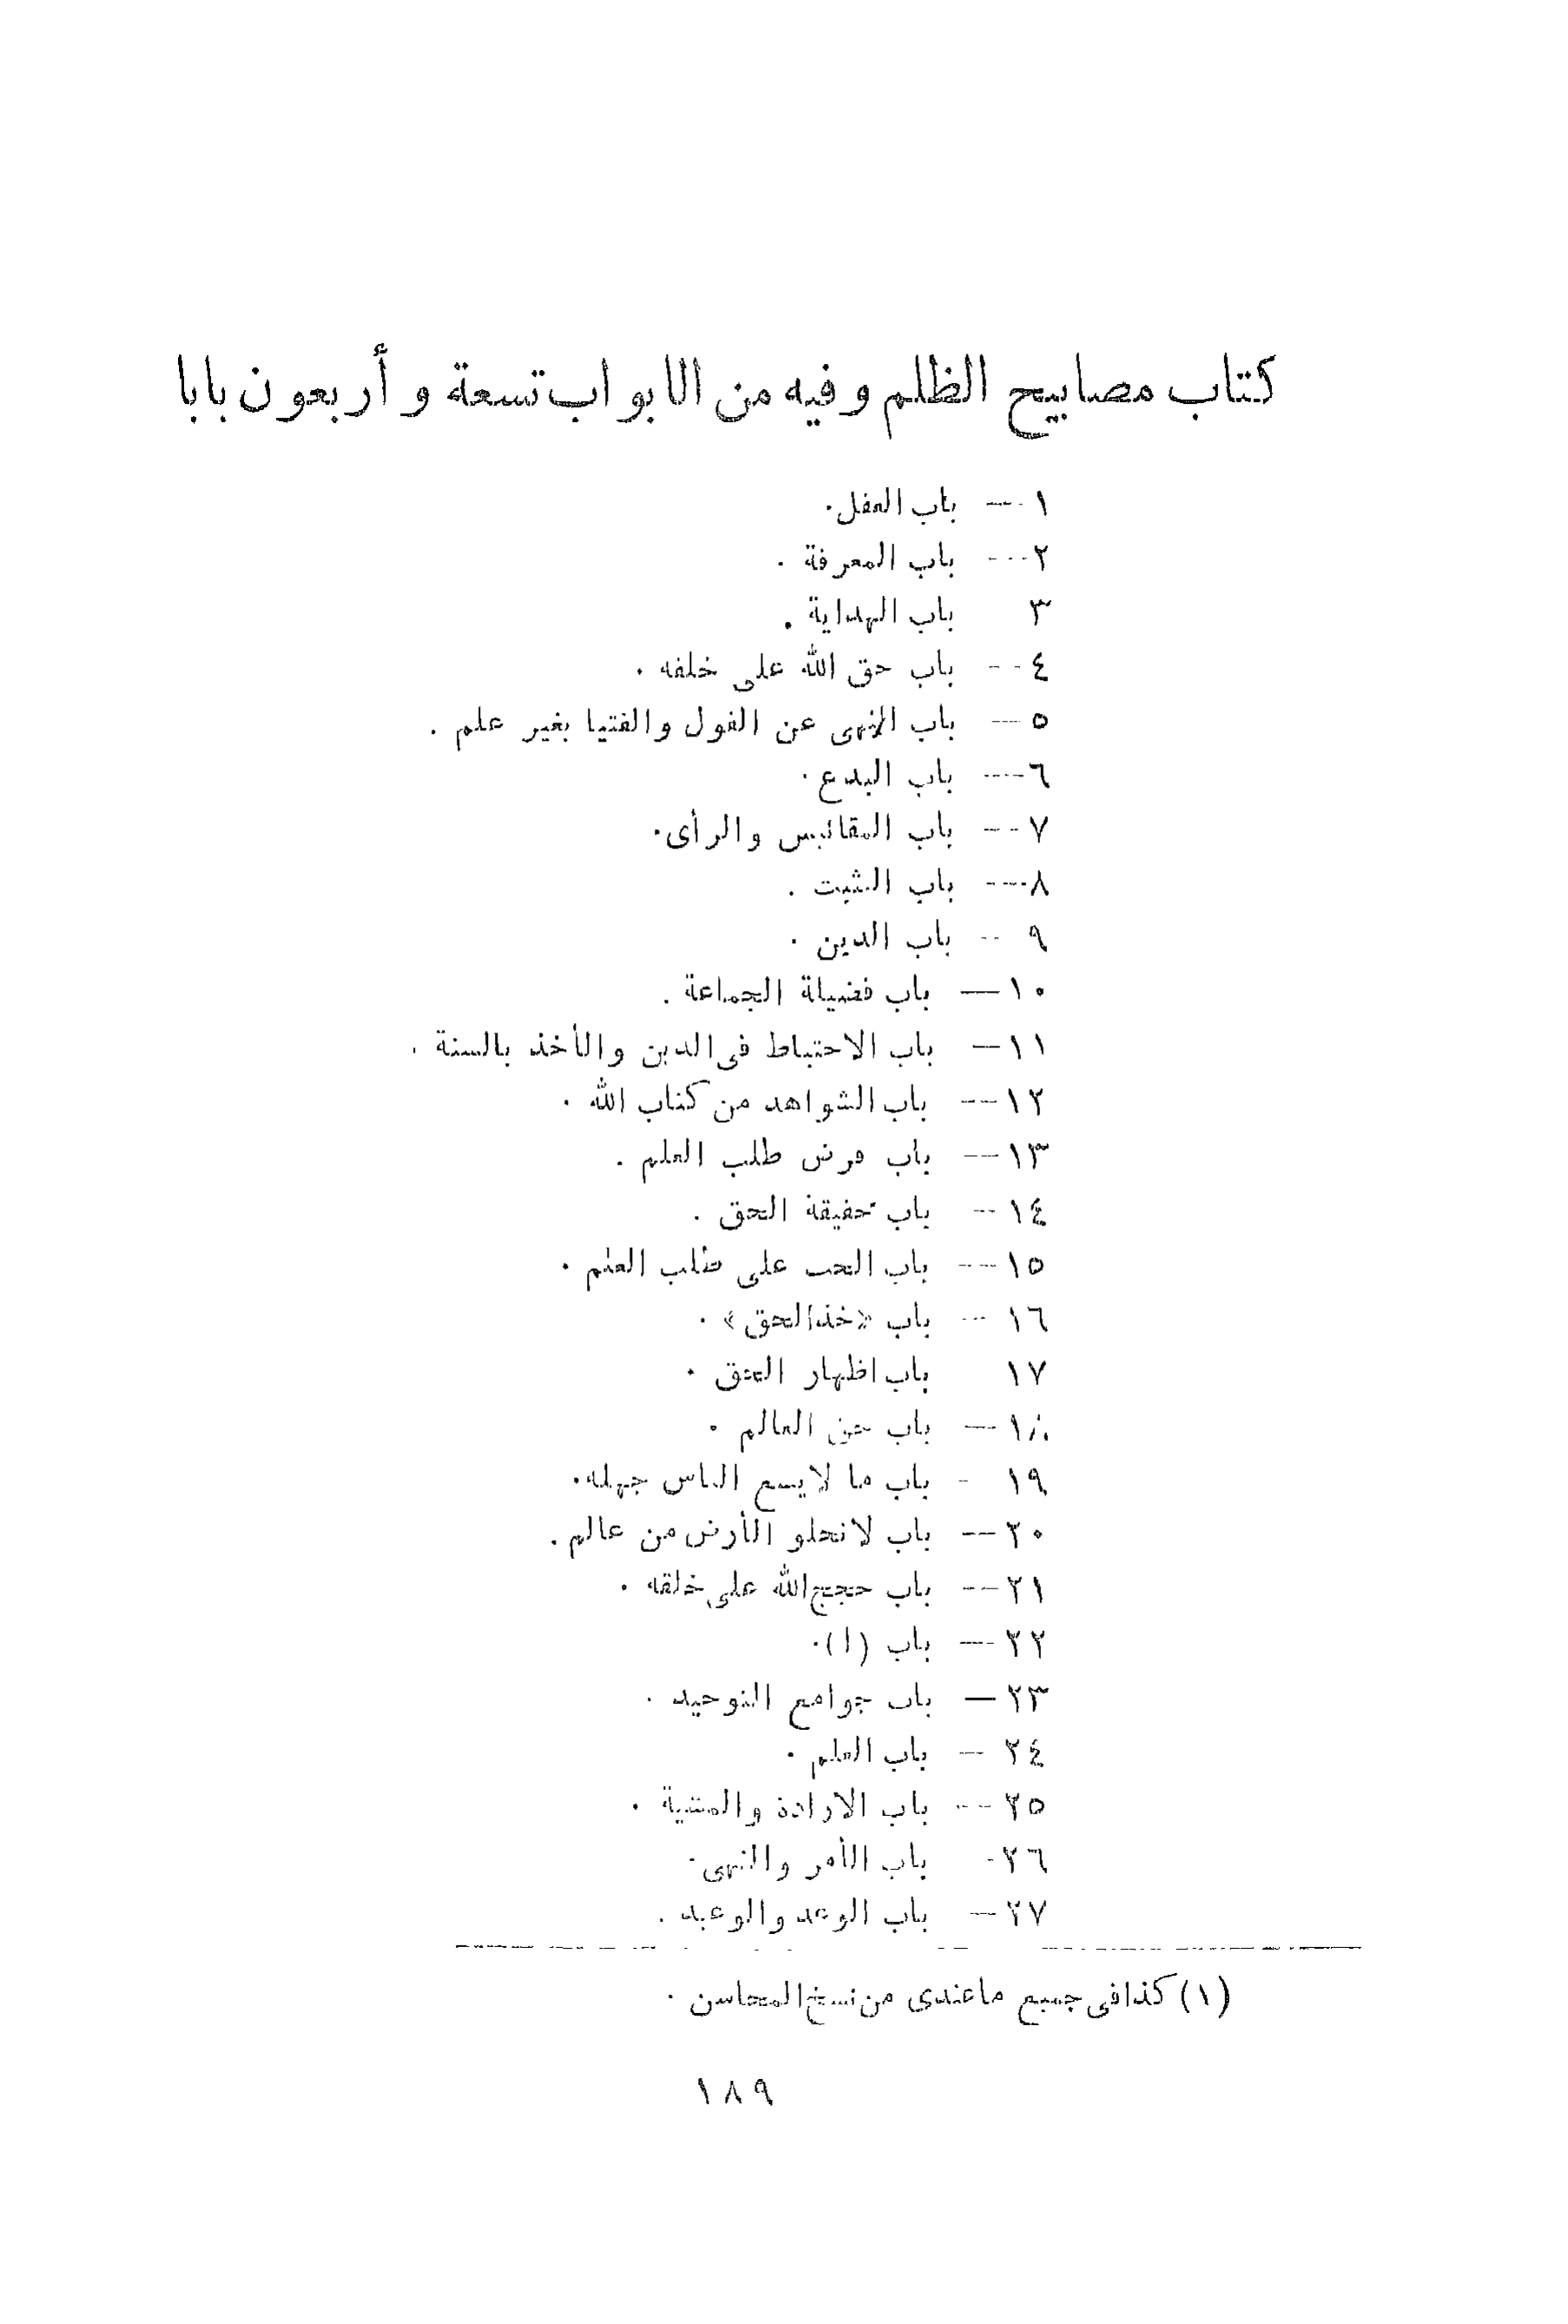 كتاب مصابيح الظلم وفيه من الابواب تسعة و أربعون بابا
١ — باب العقل.
٢ — باب المعرفة .
٣ باب الهداية .
٤ — باب حق الله على خلقه .
٥ — باب النهى عن القول والفتيا بغير علم .
٦ — باب البدع.
٧ — باب المقائيس والرأى.
٨ — باب التثبت .
٩ — باب الدين .
١٠ — باب فضيلة الجماعة .
١١ — باب الاحتياط فى الدين والأخذ بالسنة .
١٢ — باب الشواهد من كتاب الله .
١٣ — باب فرض طلب العلم .
١٤ — باب حقيقة الحق .
١٥ — باب الحث على طلب العلم .
١٦ — باب «خذ الحق» .
١٧ باب اظهار الحق .
١٨ — باب حق العالم .
١٩ - باب ما لا يسع الناس جهله.
٢٠ — باب لا تخلو الأرض من عالم .
٢١ — باب حجج الله على خلقه .
٢٢ — باب (١).
٢٣ — باب جوامع التوحيد .
٢٤ — باب العلم .
٢٥ — باب الارادة والمشية .
٢٦- باب الأمر والنهى.
٢٧ — باب الوعد والوعيد .
(١) كذا فى جميع ما عندى من نسخ المحاسن .
١٨٩